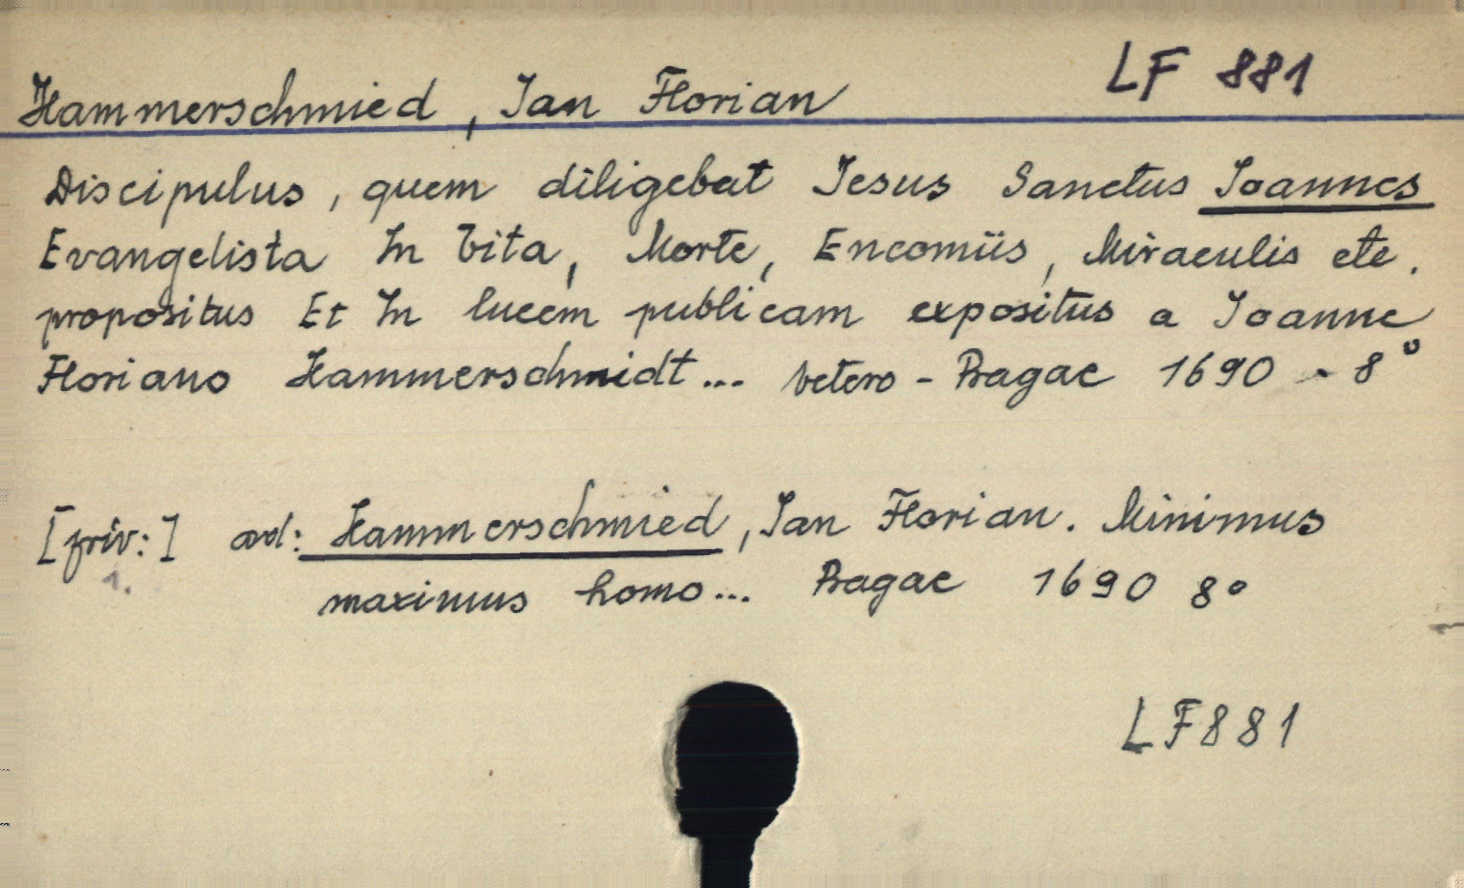 LF 881
Hammerschmied, Jan Florian
Discipulus, quem diligebat Jesus Sanctus Joannes
Evangelista In Vita, Morte, Encomiis, Miraculis etc.
propositus Et In lucem publicam expositus a Joanne
Floriano Hammerschmidt... Vetero-Pragae 1690 - 8°
[přív:] ad: Hammerschmied, Jan Florian. Minimus
1.
maximus homo... Pragae 1690 8°
LF881